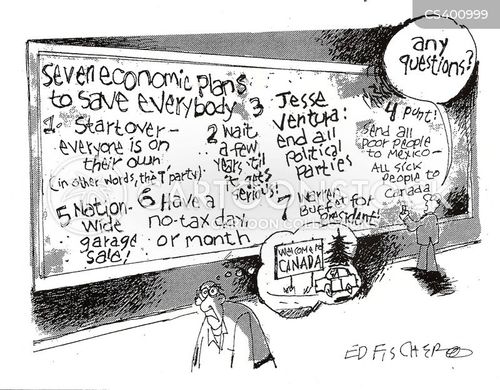 CS400999
any
questions?
seven economic plans
to save everybody
1. Start over -
everyone is on
their own
(in other words, the T party)
2 Wait
a few
years 'til
it gets
serious!
3 Jesse
Ventura:
end all
Political
Parties
4 punt!
Send all
poor people
to Mexico -
All sick
people to
Canada
5 Nation-
wide
garage
sale!
6 Have a
no-tax day
or month
7 Warren
Buffet for
president!
Welcome to
CANADA
ED FISCHER